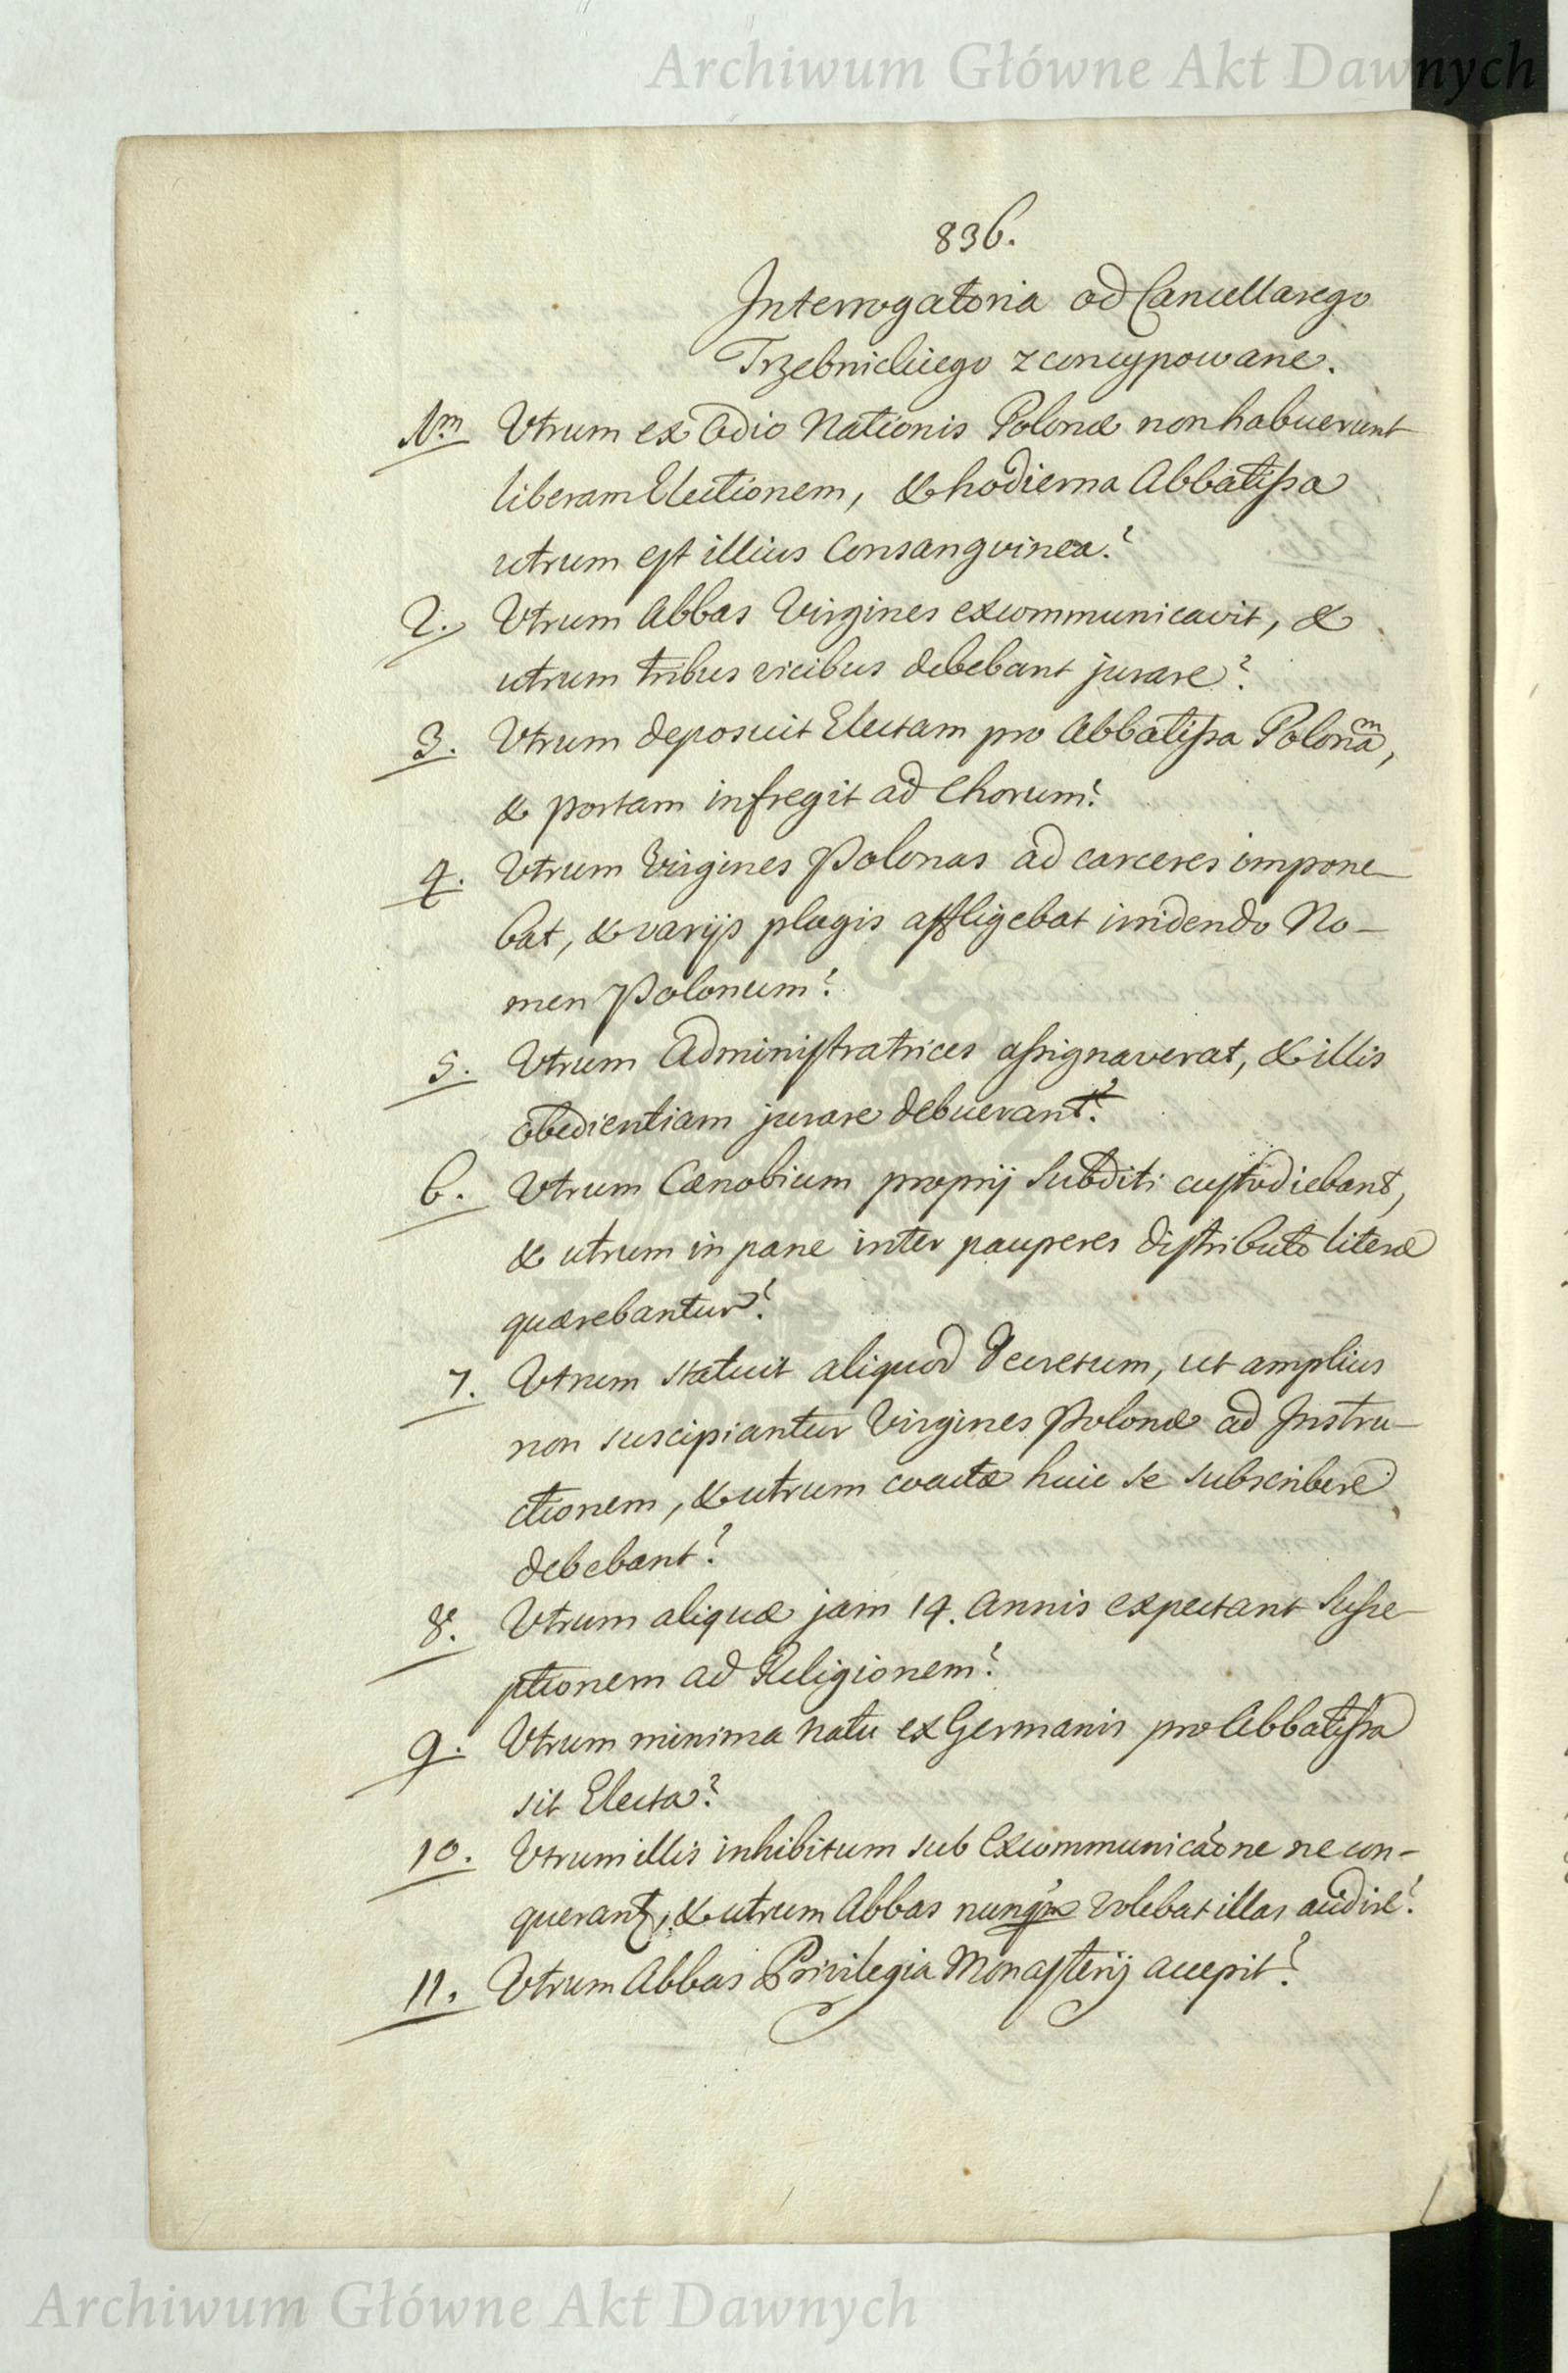 Archiwum Główne Akt Dawnych
836.
Interrogatoria od Cancellarego
Trzebnickiego zconcypowane.
1m Utrum ex Odio Nationis Polonæ non habuerunt
liberam Electionem, & hodierna Abbatissa
utrum est illius Consangvinea?
2. Utrum Abbas Virgines excommunicavit, &
utrum tribus vicibus debebant jurare?
3. Utrum deposuit Electam pro Abbatissa Polonam,
& portam infregit ad Chorum?
4. Utrum Virgines Polonas ad carceres impone-
bat, & varijs plagis affligebat irridendo No-
men Polonum?
5. Utrum Administratrices assignaverat, & illis
obedientiam jurare debuerant?
6. Utrum Cænobium proprij Subditi custodiebant,
& utrum in pane inter pauperes distributo literæ
quærebantur?
7. Utrum statuit aliquod Decretum, ut amplius
non suscipiantur Virgines Polonæ ad Instru-
ctionem, & utrum coactæ huic se subscribere
debebant?
8. Utrum aliquæ jam 14. annis expectant Susce-
ptionem ad Religionem?
9. Utrum minima natu ex Germanis pro Abbatissa
sit Electa?
10. Utrum illis inhibitum sub Excommunicãone ne con-
querant, & utrum Abbas nunqm volebat illas audire?
11. Utrum Abbas Privilegia Monasterij accepit?
Archiwum Główne Akt Dawnych